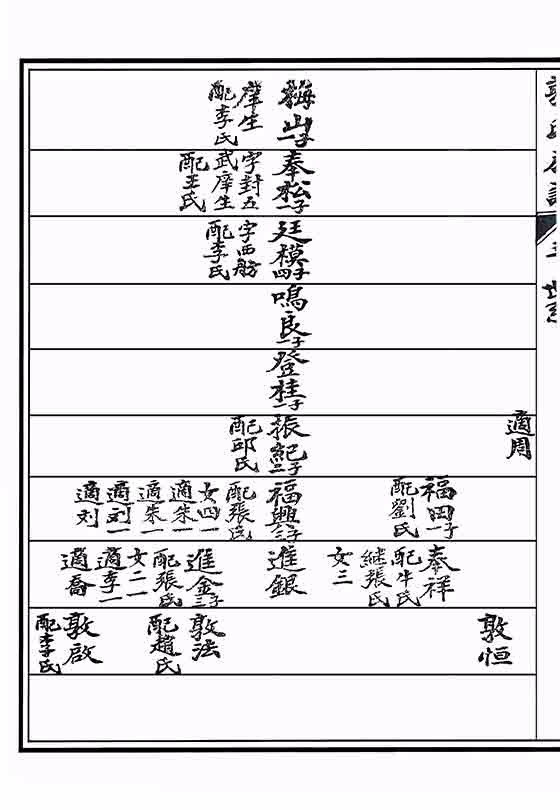 適周
梅山一子
庠生
配李氏
奉松一子
字對五
武庠生
配王氏
廷模四子
字西舫
配李氏
鳴良一子
登桂一子
振紀二子
配邱氏
福田一子
配劉氏
福興二子
配張氏
女四一
適朱一
適朱一
適刘一
適刘
奉祥
配牛氏
継張氏
女三
進銀
進金二子
配張氏
女二一
適李一
適喬
敦恒
敦法
配趙氏
敦啟
配李氏